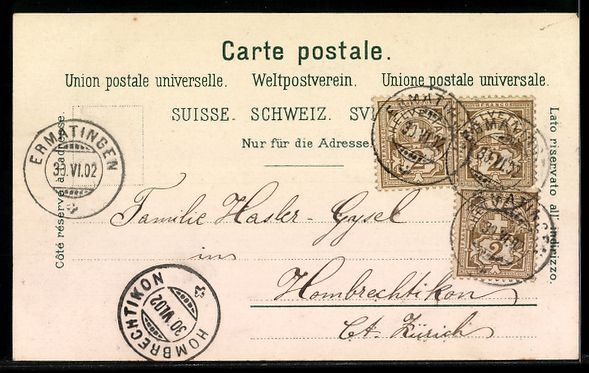 Carte postale.
Union postale universelle. Weltpostverein. Unione postale universale.
SUISSE. SCHWEIZ.
Nur für die Adresse
Côté réservé à l'adresse.
Lato riservato all'indirizzo.
ERMATINGEN
30.VI.02
FRANCO
HELVETIA
2
2
Familie Hasler-Gysel
in
Hombrechtikon
Ct. Zürich
HOMBRECHTIKON
30.VI.02